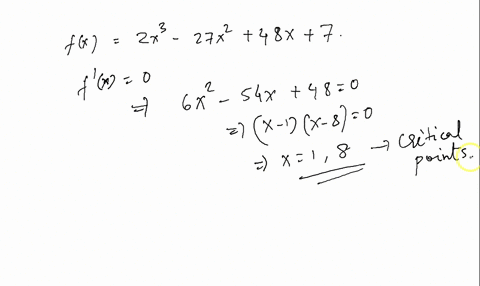 f(x) = 2x³ - 27x² + 48x + 7.
f'(x) = 0
⇒ 6x² - 54x + 48 = 0
⇒ (x-1) (x-8) = 0
⇒ x = 1, 8 → critical points.